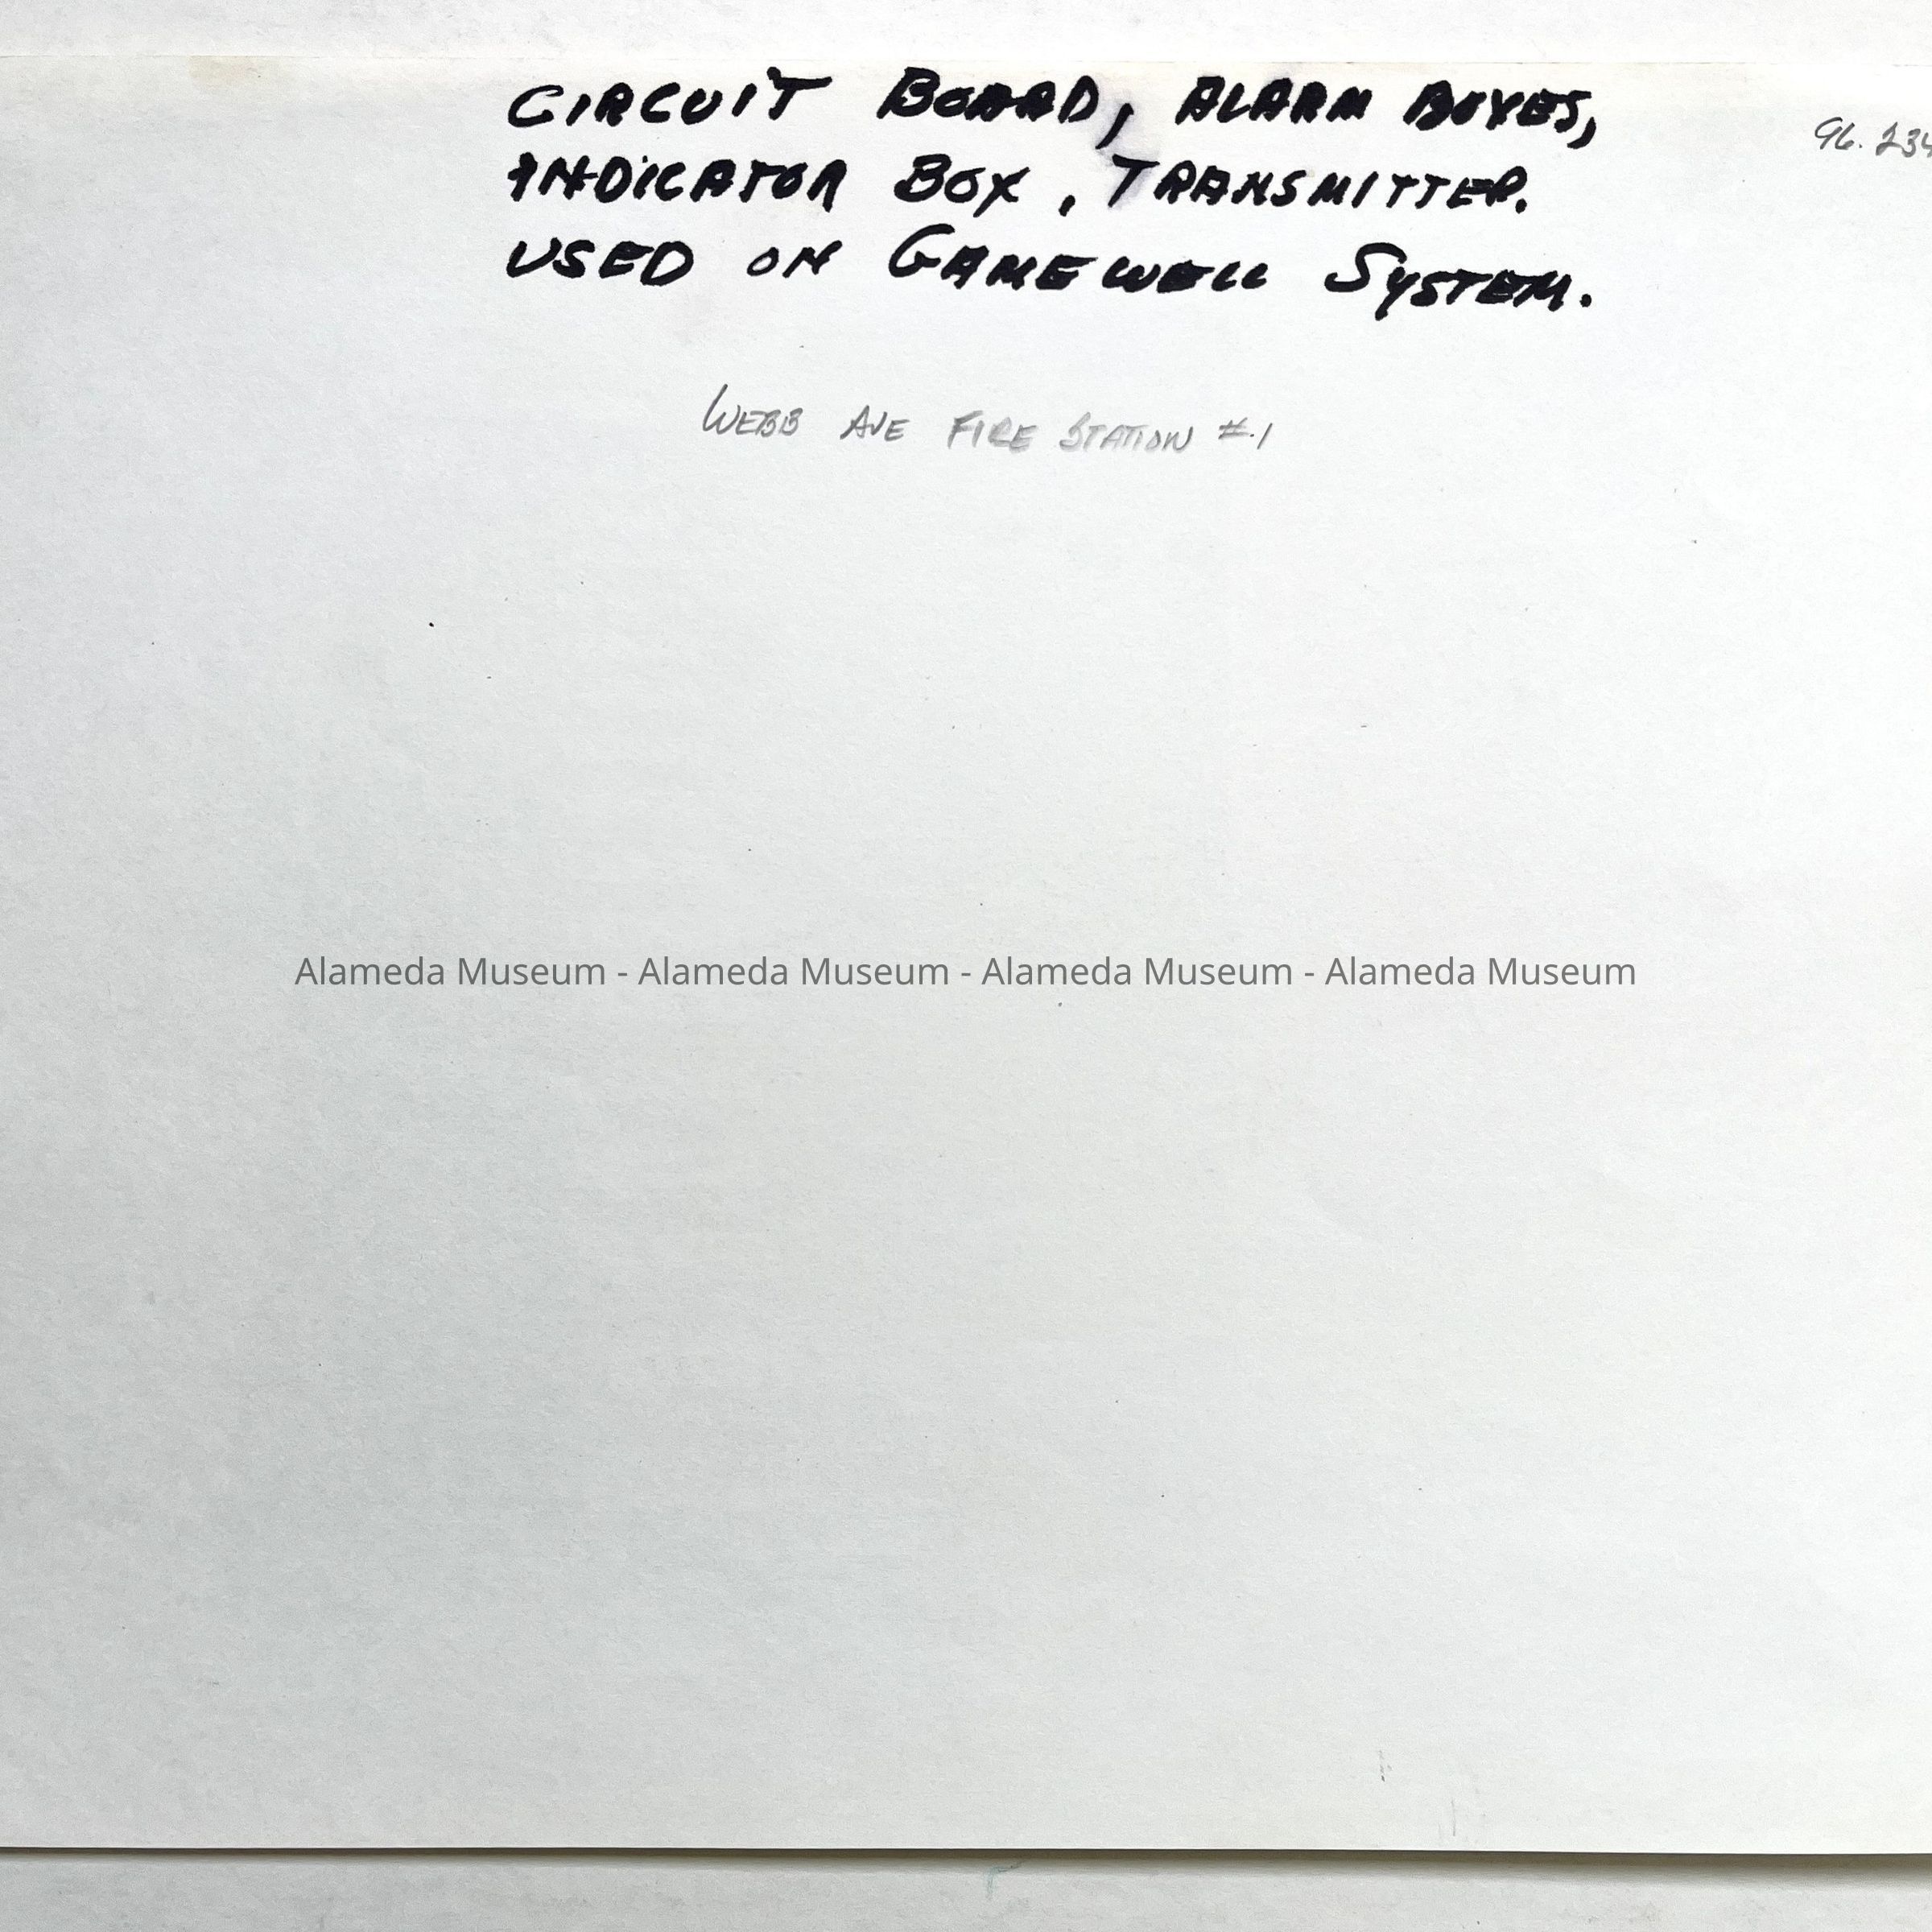 CIRCUIT BOARD, ALARM BOXES,
96.234
INDICATOR BOX, TRANSMITTER.
USED ON GAMEWELL SYSTEM.
WEBB AVE FIRE STATION #.1
Alameda Museum - Alameda Museum - Alameda Museum - Alameda Museum